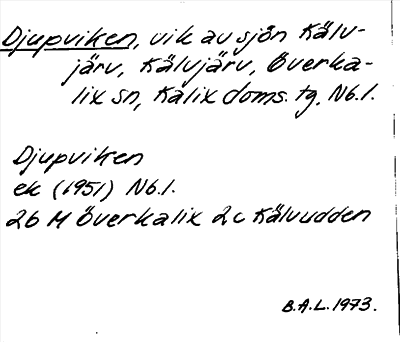 Djupviken, vik av sjön Kälv-
järv, Kälvjärv, Överka-
lix sn, Kalix doms. tg, Nb.l.
Djupviken
ek (1951) Nb.l.
26 M Överkalix 2c Kälvudden
B.A.L. 1973.